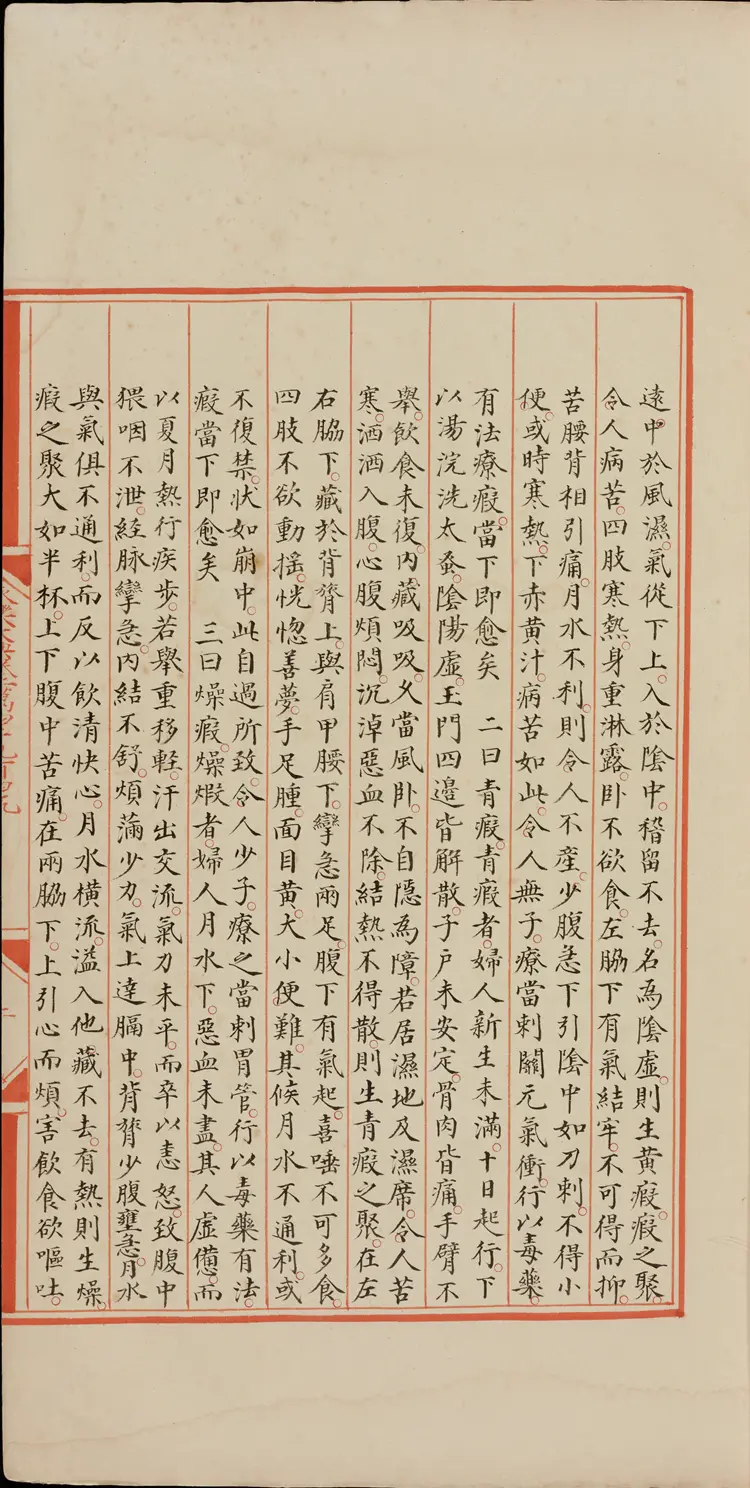 遠中於風濕。氣從下上。入於陰中。稽留不去。名為陰虛。則生黃瘕。瘕之聚。
令人病苦。四肢寒熱。身重淋露。卧不欲食。左脇下有氣結牢。不可得而抑。
苦腰背相引痛。月水不利。則令人不産。少腹急下引陰中如刀刺。不得小
便。或時寒熱。下赤黃汁。病苦如此。令人無子。療當刺關元氣衝。行以毒藥。
有法療瘕。當下即愈矣　二曰青瘕。青瘕者。婦人新生未滿。十日起行。下
以湯浣洗太蚤。陰陽虛。玉門四邊皆解散。子戶未安定。骨肉皆痛。手臂不
舉。飲食未復。内藏吸吸。又當風卧。不自隱為障。若居濕地及濕席。令人苦
寒。洒洒入腹。心腹煩悶。沉淖惡血不除。結熱不得散。則生青瘕之聚。在左
右脇下。藏於背膂上。與肩甲腰下。攣急兩足。腹下有氣起。喜唾不可多食。
四肢不欲動搖。恍惚善夢。手足腫。面目黃。大小便難。其候月水不通利。或
不復禁。狀如崩中。此自過所致。令人少子。療之當刺胃管。行以毒藥有法。
瘕當下即愈矣　三曰燥瘕。燥煆者。婦人月水下。惡血未盡。其人虛憊。而
以夏月熱行疾步。若舉重移輕。汗出交流。氣力未平。而卒以恚怒。致腹中
猥咽不泄。経脉攣急。内結不舒。煩滿少力。氣上達膈中。背膂少腹壅急。月水
與氣俱不通利。而反以飲清快心。月水橫流。溢入他藏不去。有熱則生燥。
瘕之聚。大如半杯。上下腹中苦痛。在兩脇下。上引心而煩。害飲食欲嘔吐。